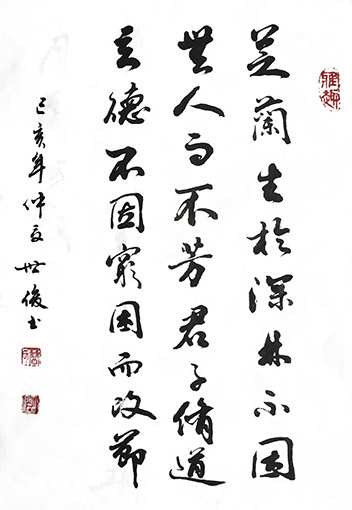 芝蘭生於深林不因
無人而不芳君子脩道
立德不因窮困而改節
己亥年仲夏世俊书